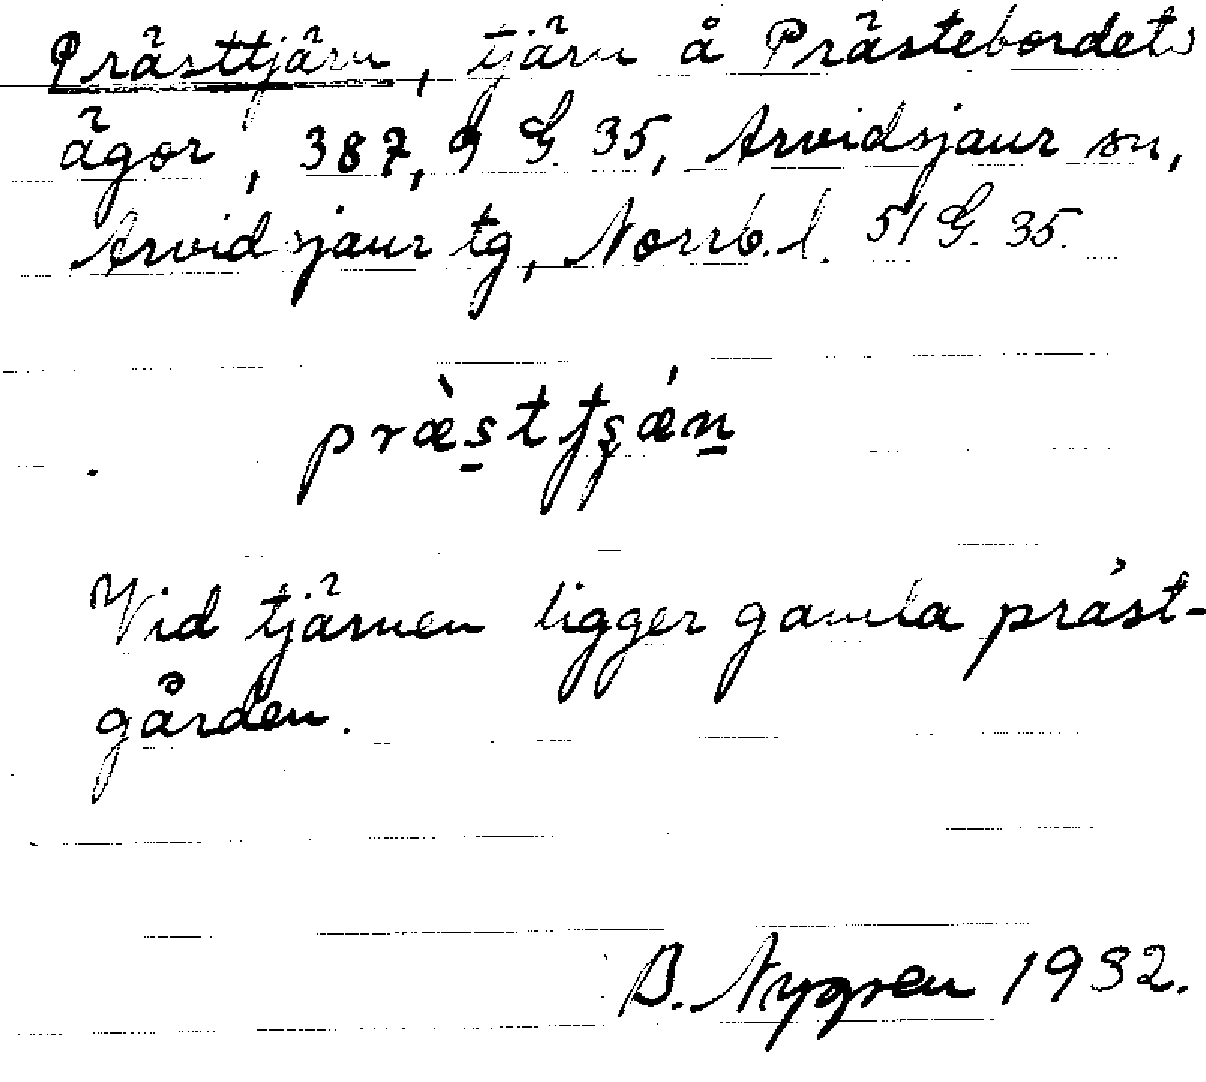 Prästtjärn, tjärn å Prästebordets
ägor, 387, 9 G. 35, Arvidsjaur sn,
Arvidsjaur tg, Norrb. l. 51 G. 35.
præ̀s̱ttʂǽṉ
Vid tjärnen ligger gamla präst-
gården.
B. Nygren 1932.